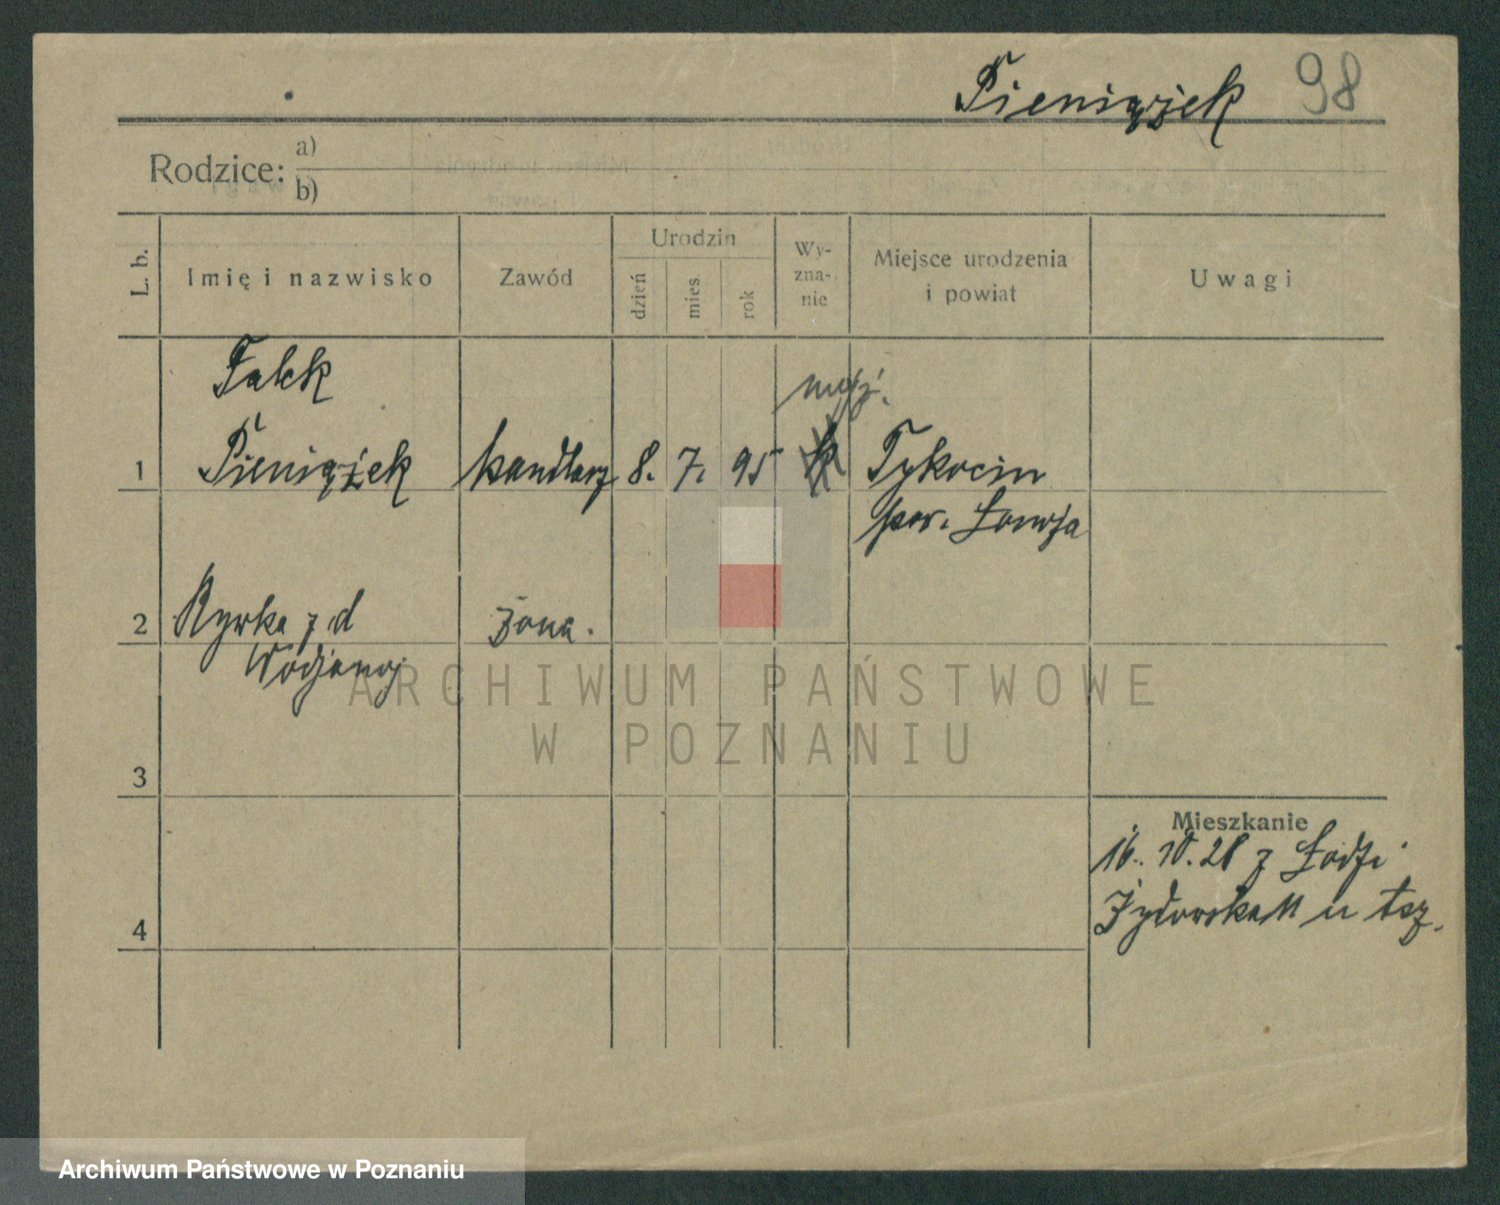 Pieniążek 98
Rodzice: a)
b)
L. b.
Imię i nazwisko
Zawód
Urodzin
dzień
mies.
rok
Wy-
zna-
nie
Miejsce urodzenia
i powiat
Uwagi
Falek
mojż.
1 Pieniążek handlarz 8. 7. 95 Tykocin
pow. Łomża
2 Rywka z d żona.
ARCHIWUM PAŃSTWOWE
W POZNANIU
3
Mieszkanie
16. 10. 28 z Łodzi
Żydowska 11 u tsz.
4
Archiwum Państwowe w Poznaniu